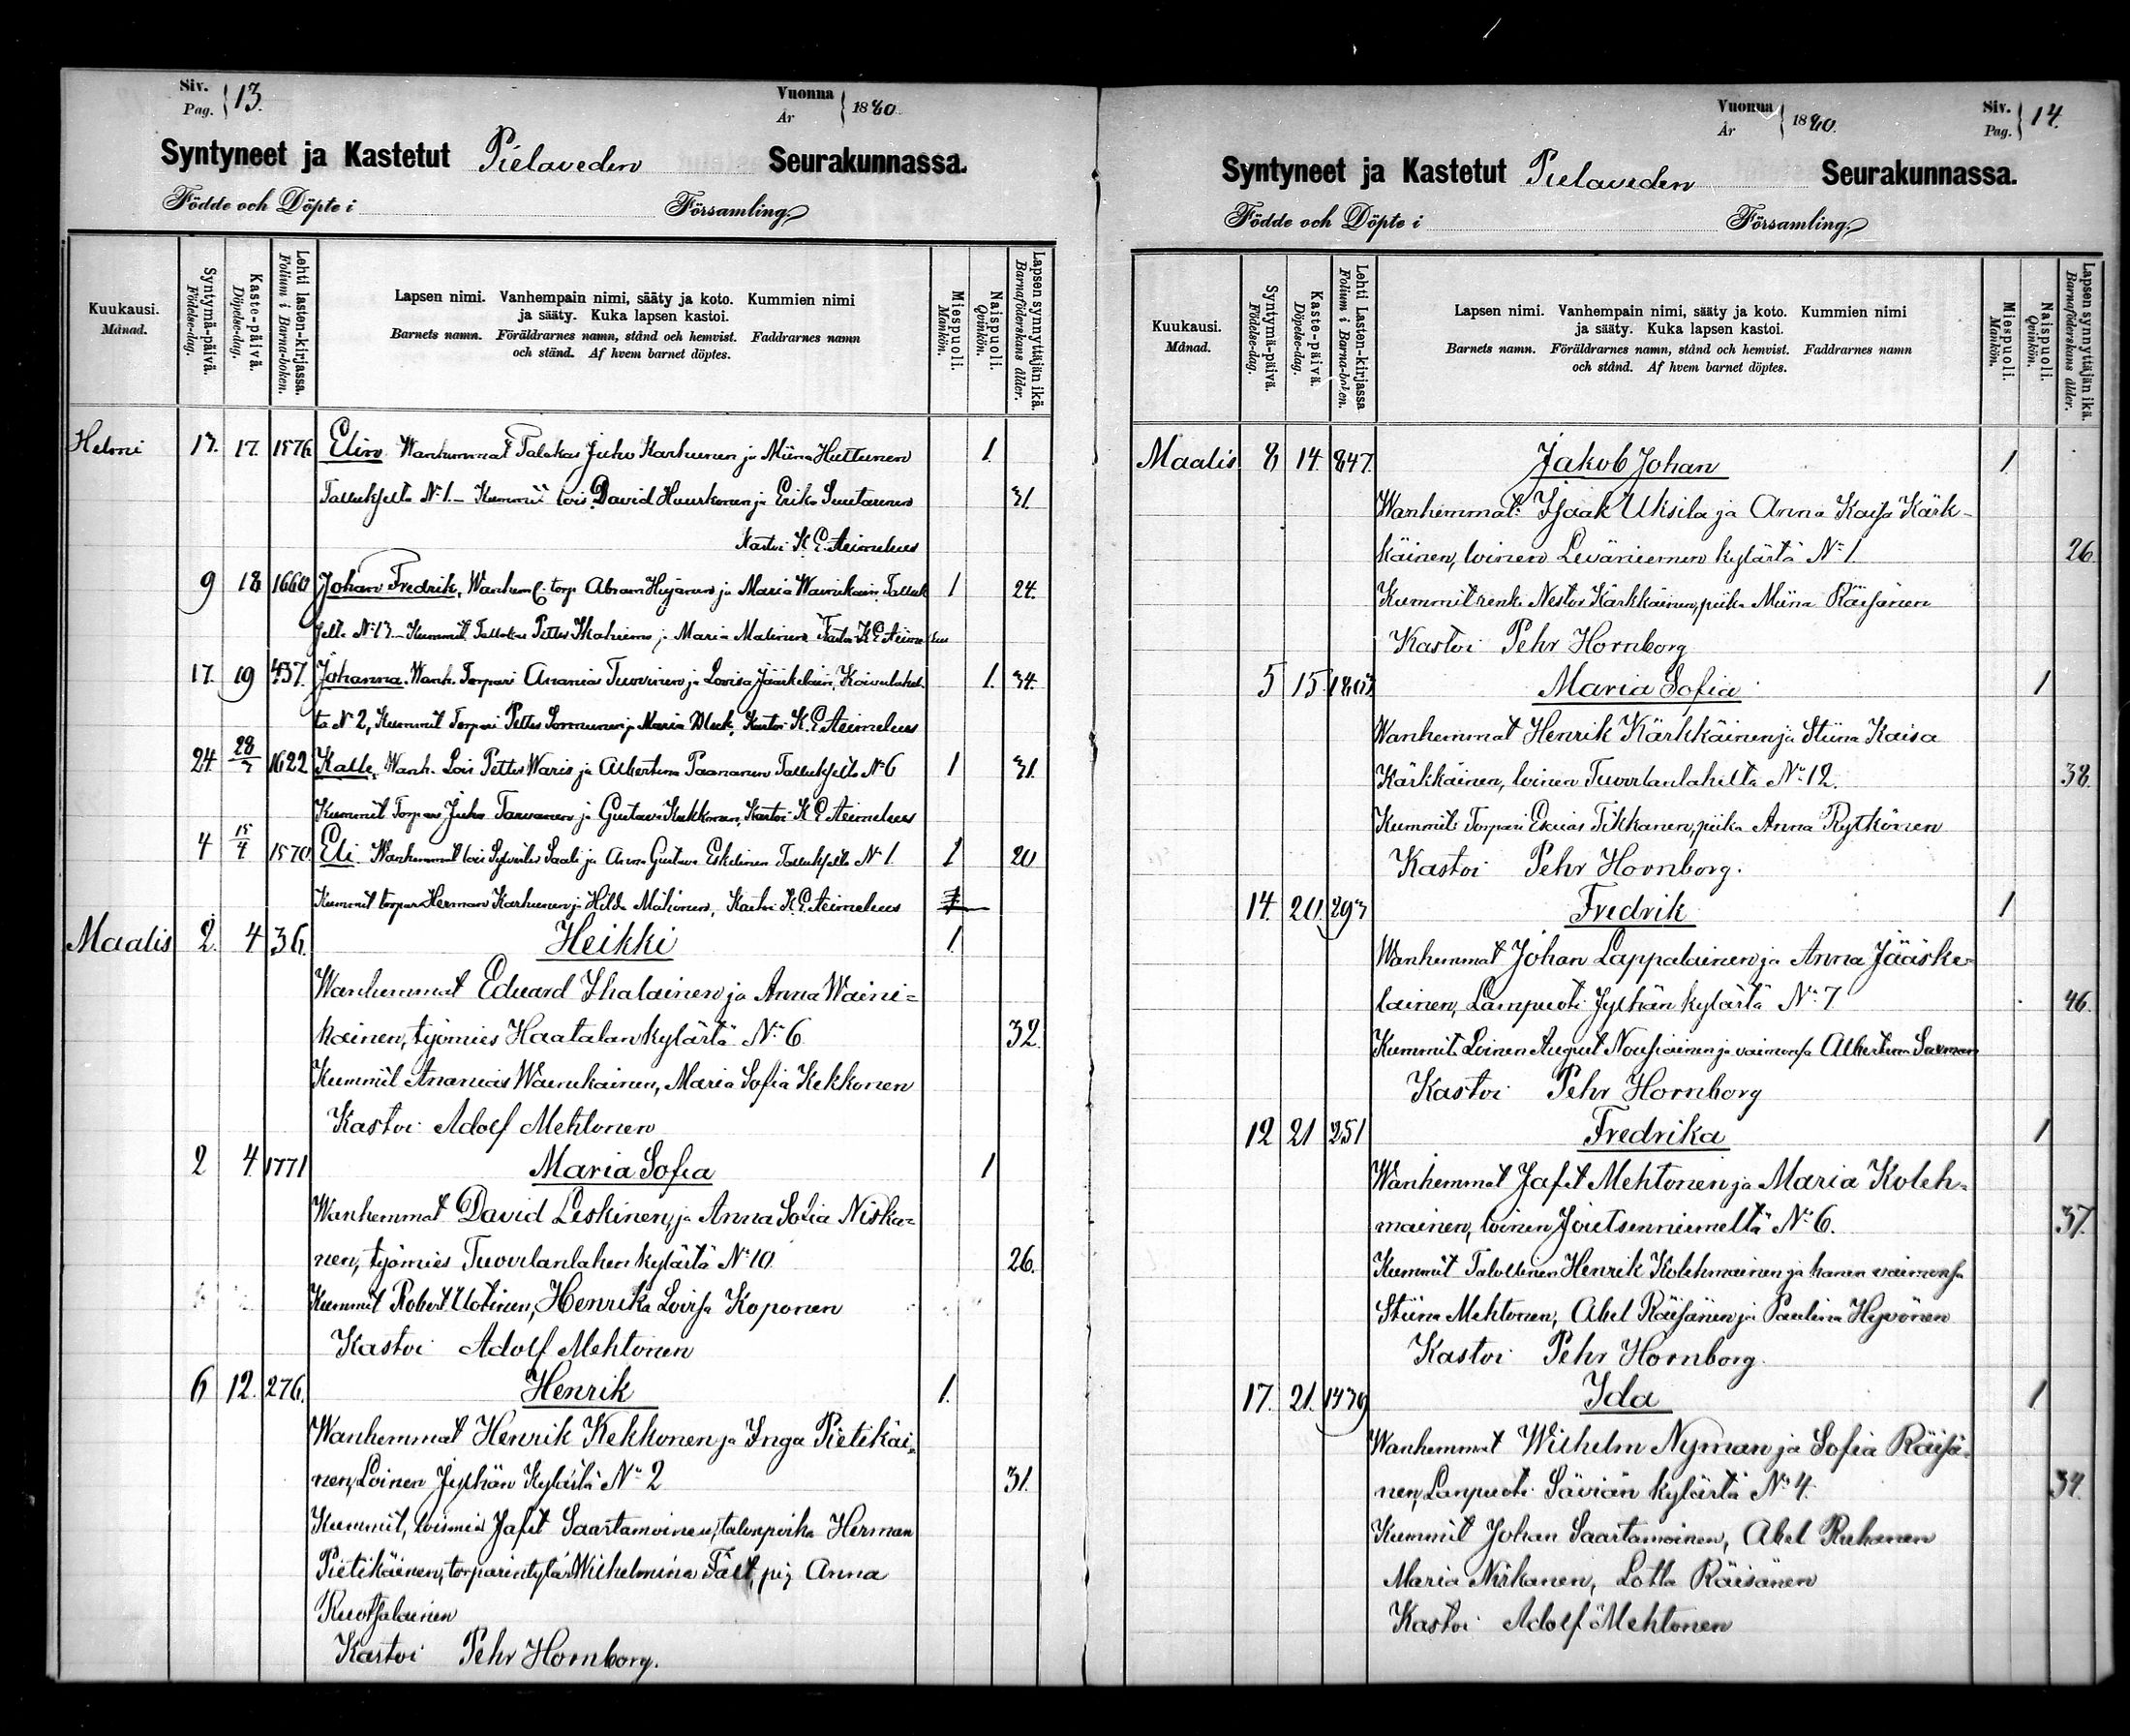 Siv. Pag. } 13.
Vuonna År } 1880.
Syntyneet ja Kastetut Pielaveden Seurakunnassa.
Födde och Döpte i Församling.
Kuukausi. Månad.
Syntymä-päivä. Födelse-dag.
Kaste-päivä. Döpelse-dag.
Lehti lasten-kirjassa. Folium i Barna-boken.
Lapsen nimi. Vanhempain nimi, sääty ja koto. Kummien nimi
ja sääty. Kuka lapsen kastoi.
Barnets namn. Föräldrarnes namn, stånd och hemvist. Faddrarnes namn
och stånd. Af hvem barnet döptes.
Miespuoli. Mankön.
Naispuoli. Qvinkön.
Lapsen synnyttäjän ikä. Barnaföderskans ålder.
Helmi 17. 1576 Elin Wanhemmat Talokas Juho Karhunen ja Miina Huttunen 1.
N:o 1. Kummit lois David Huuskonen ja Erika 31.
Kastoi K. E.
9 18 1660 Johan Fredrik, Abram ja Maria 1 24.
N:o 13. Kummit Petter ja Maria K. E.
17. 19 437. Johanna. Wanh. Torpari Ananias Tuovinen ja Lovisa 1. 34.
ta N:o 2, Kummit Torpari Petter ja Maria Kastoi K. E.
24. 28/3 1622 Kalle, Wanh. Lois Petter Waris ja Albertina Paananen N:o 6 1 31.
Kummit Torpari Juho ja Gustava Kastoi K. E.
4 15/4 1570 Eli Wanhemmat lois Sylvester ja Anna Gustava Eskelinen N:o 1 1 20
Kummit torpari Herman Karhunen ja Hilda Kastoi K. E.
Maalis 2. 4 36. Heikki 1.
Wanhemmat Eduard Ihalainen ja Anna Waini=
kainen, työmies Haatalan kylästä N:o 6 32.
Kummit Ananias Wainikainen, Maria Sofia Kekkonen
Kastoi Adolf Mehtonen
2 4. 1771 Maria Sofia 1
Wanhemmat David Leskinen, ja Anna Sofia Niska=
nen, työmies Tuovilanlahen kylästä N:o 10. 26.
Kummit Robert Uotinen, Henrika Lovisa Koponen
Kastoi Adolf Mehtonen
6 12. 276. Henrik 1.
Wanhemmat Henrik Kekkonen ja Inga Pietikäi=
nen, Loinen Jylhän Kylästä N:o 2 31.
Kummit, loismies Jafet Saastamoinen, talonpoika Herman
Pietikäinen, torparintytär Wilhelmina Fält, Anna
Ruotsalainen
Kastoi Pehr Hornborg.
Vuonna År } 1880.
Siv. Pag. } 14.
Syntyneet ja Kastetut Pielaveden Seurakunnassa.
Födde och Döpte i Församling.
Kuukausi. Månad.
Syntymä-päivä. Födelse-dag.
Kaste-päivä. Döpelse-dag.
Lehti Lasten-kirjassa Folium i Barna-boken.
Lapsen nimi. Vanhempain nimi, sääty ja koto. Kummien nimi
ja sääty. Kuka lapsen kastoi.
Barnets namn. Föräldrarnes namn, stånd och hemvist. Faddrarnes namn
och stånd. Af hvem barnet döptes.
Miespuoli. Mankön.
Naispuoli. Qvinkön.
Lapsen synnyttäjän ikä. Barnaföderskans ålder.
Maalis 8 14. 847. Jakob Johan 1
Wanhemmat: Isaak Uksila ja Anna Kaisa Kärk-
käinen, loinen Leväniemen kylästä N:o 1. 26
Kummit renki Nestor Kärkkäinen, piika Miina Räisänen
Kastoi Pehr Hornborg
5 15. Maria Sofia 1
Wanhemmat Henrik Kärkkäinen ja Stiina Kaisa
Kärkkäinen, loinen Tuovilanlahelta N:o 12. 38.
Kummit: Torpari Esaias Tikkanen, piika Anna Rytkönen
Kastoi Pehr Hornborg.
14. 20. 293 Fredrik 1
Wanhemmat Johan Lappalainen ja Anna Jääske=
lainen, Lampuoti Jylhän kylästä N:o 7 46.
Kummit Loinen August Nousiainen ja vaimonsa Albertina
Kastoi Pehr Hornborg
12 21 251 Fredrika 1
Wanhemmat Jafet Mehtonen ja Maria Koleh=
mainen, loinen Joutsenniemeltä N:o 6. 37.
Kummit Talollinen Henrik Kolehmainen ja hänen vaimonsa
Stiina Mehtonen, Abel Räisänen ja Paulina Hyvönen
Kastoi Pehr Hornborg.
17. 21. 1439 Ida 1.
Wanhemmat Wilhelm Nyman ja Sofia Räisä=
nen, Lampuoti Säviän kylästä N:o 4. 34.
Kummit Johan Saastamoinen, Abel Ruhanen
Maria Niskanen, Lotta Räisänen
Kastoi Adolf Mehtonen